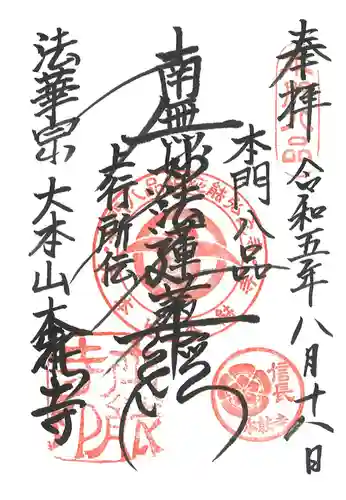 奉拝
令和五年八月十八日
本門八品
南無妙法蓮華経
上行所伝
法華宗 大本山 本能寺
信長